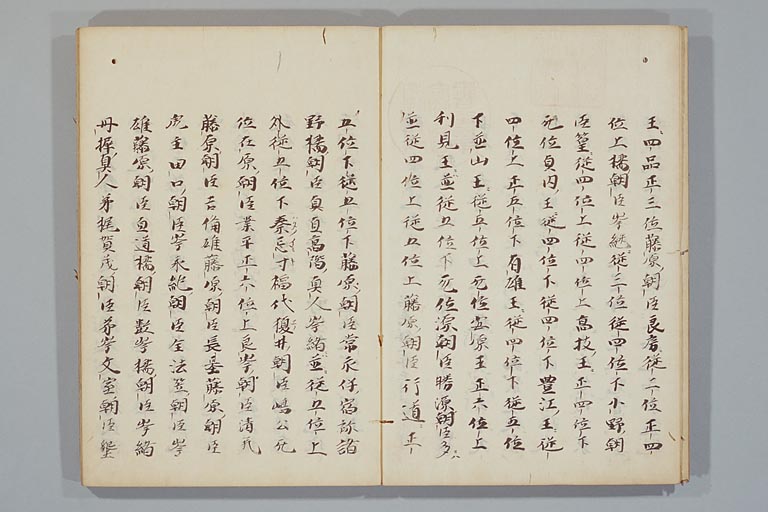 王四品正三位藤原朝臣良房従二位正四
位上橘朝臣岑継従三位従四位下小野朝
臣篁従四位上従四位上高枝王正四位下
无位貞内王従四位下従四位下豊江王従
四位上正五位下有雄王従四位下従五位
下並山王従五位上无位宜原王正六位上
利見王並従五位下无位源朝臣勝源朝臣多
並従四位上従五位上藤原朝臣行道正
五位下従五位下藤原朝臣常永伴宿祢諸
野橘朝臣真直高階真人岑緒並従五位上
外従五位下秦忌寸福代榎井朝臣嶋公无
位在原朝臣業平正六位上良岑朝臣清風
藤原朝臣吉備雄藤原朝臣長基藤原朝臣
虎主田口朝臣岑永紀朝臣全法笠朝臣岑
雄藤原朝臣直道橘朝臣数岑橘朝臣岑緒
丹墀真人弟梶賀茂朝臣弟岑文室朝臣